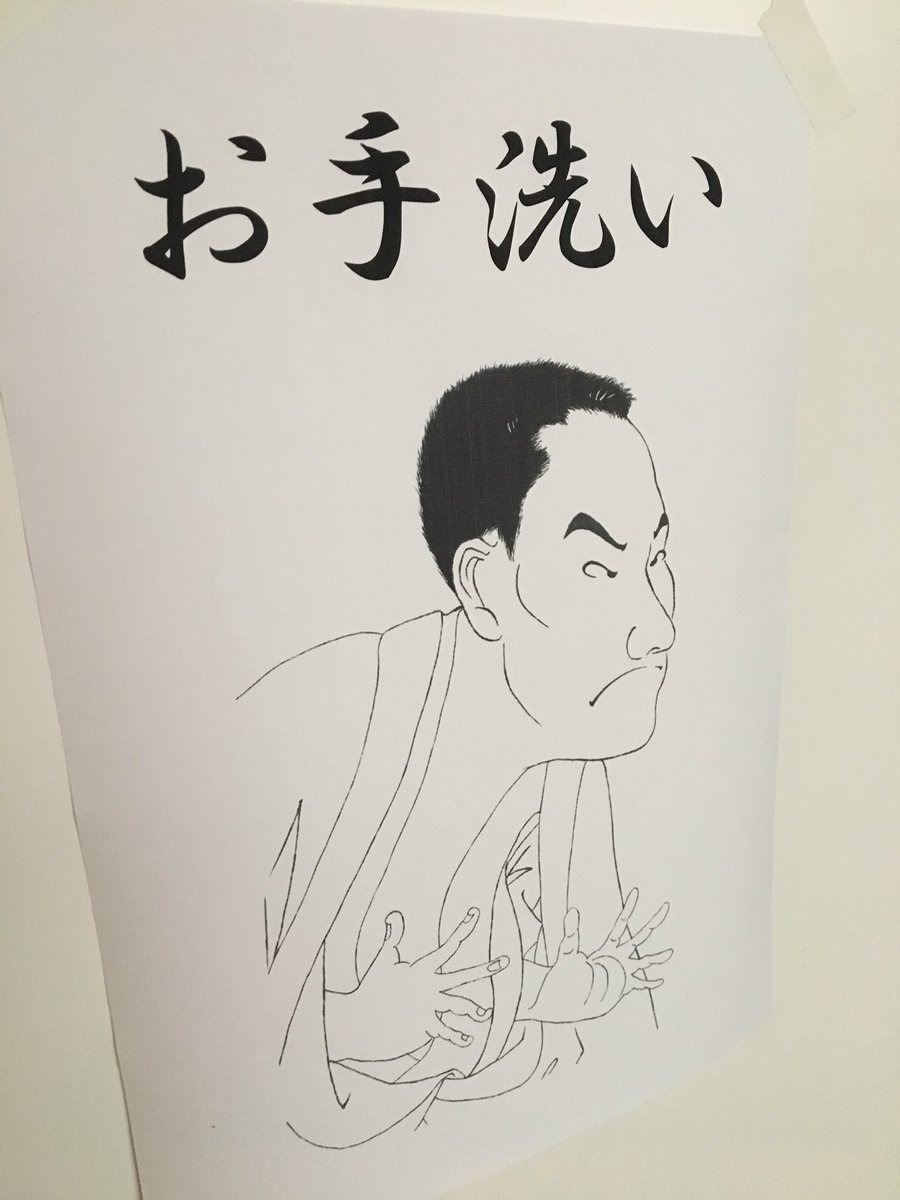 お手洗い